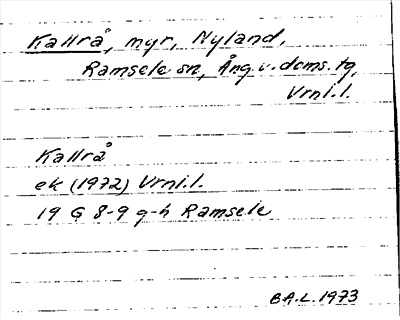 Kallrå, myr, Nyland,
Ramsele sn, Ång.v.doms.tg,
Vrnl.l.
Kallrå
ek (1972) Vrnl.l.
19 G 8-9 g-h Ramsele
B A.L. 1973